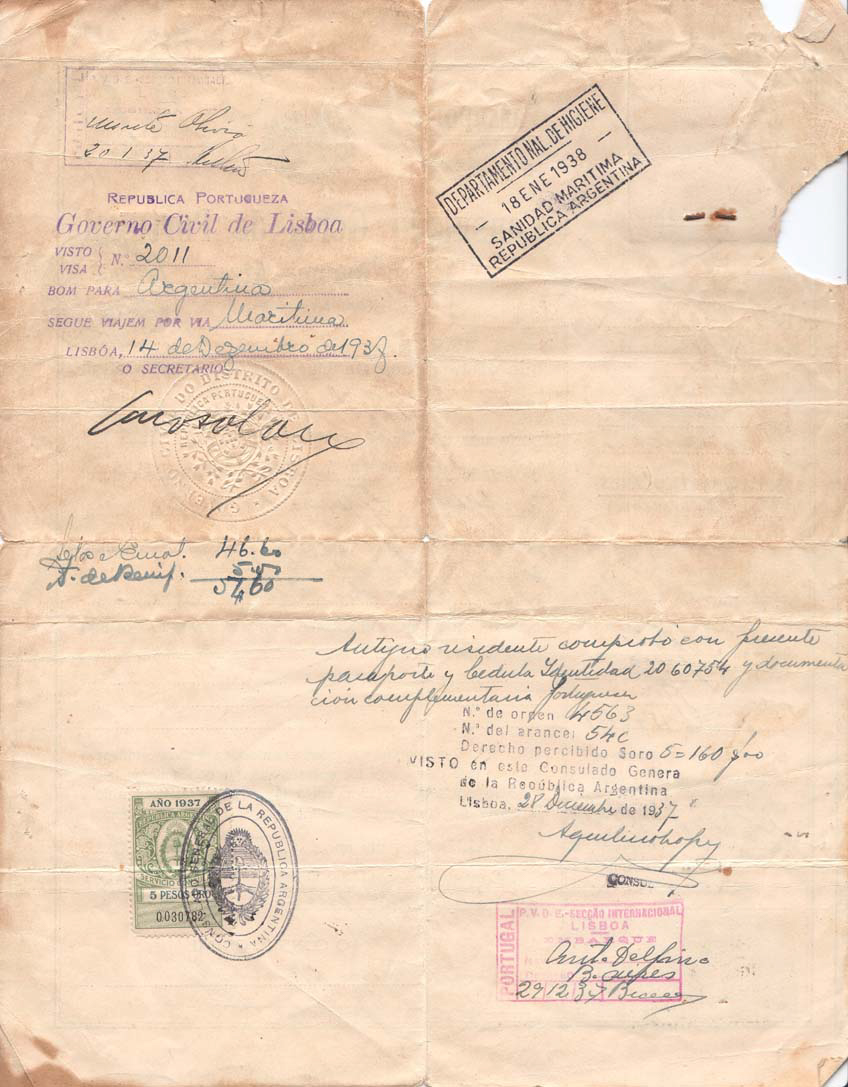 P. V. D. E.
Monte Olivia
20 1 37
REPUBLICA PORTUGUEZA
Governo Civil de Lisboa
VISTO
VISA
N.º 2011
BOM PARA Argentina
SEGUE VIAJEM POR VIA Maritima
LISBÔA, 14 de Dezembro de 1937.
O SECRETARIO
DO DISTRITO DE LISBOA
REPUBLICA PORTUGUEZA
46.60
5460
DEPARTAMENTO NAL. DE HIGIENE
— 18 ENE 1938 —
SANIDAD MARITIMA
REPUBLICA ARGENTINA
Antiguo residente comprobó con presente
pasaporte y Cedula Identidad 2060754 y documenta
ción complementaria portuguesa
N.º de orden 4563
N.º del arancel 54c
Derecho percibido $oro 5=160
VISTO en este Consulado Genera
de la República Argentina
Lisboa, 28 Diciembre de 1937
CONSUL
AÑO 1937
REPUBLICA ARGE
SERVICIO CON
5 PESOS ORO
0030782
CONSULADO GENERAL DE LA REPUBLICA ARGENTINA
PORTUGAL
P. V. D. E.-SECÇÃO INTERNACIONAL
LISBOA
EMBARQUE
Ant. Delfino
B. Aires
29 12 37